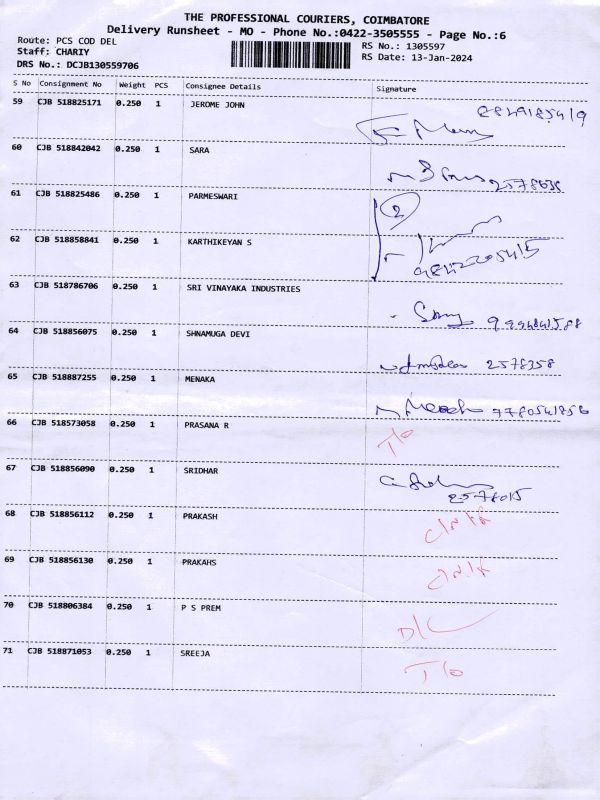 THE PROFESSIONAL COURIERS, COIMBATORE
Delivery Runsheet - MO - Phone No.:0422-3505555 - Page No.:6
Route: PCS COD DEL
Staff: CHARIY
DRS No.: DCJB130559706
RS No.: 1305597
RS Date: 13-Jan-2024
S No Consignment No Weight PCS Consignee Details Signature
59 CJB 518825171 0.250 1 JEROME JOHN
60 CJB 518842042 0.250 1 SARA
61 CJB 518825486 0.250 1 PARMESWARI 2
62 CJB 518858841 0.250 1 KARTHIKEYAN S
63 CJB 518786706 0.250 1 SRI VINAYAKA INDUSTRIES
64 CJB 518856075 0.250 1 SHNAMUGA DEVI 2578258
65 CJB 518887255 0.250 1 MENAKA
66 CJB 518573058 0.250 1 PRASANA R T/o
67 CJB 518856090 0.250 1 SRIDHAR
68 CJB 518856112 0.250 1 PRAKASH
69 CJB 518856130 0.250 1 PRAKAHS
70 CJB 518806384 0.250 1 P S PREM D/C
71 CJB 518871053 0.250 1 SREEJA T/o